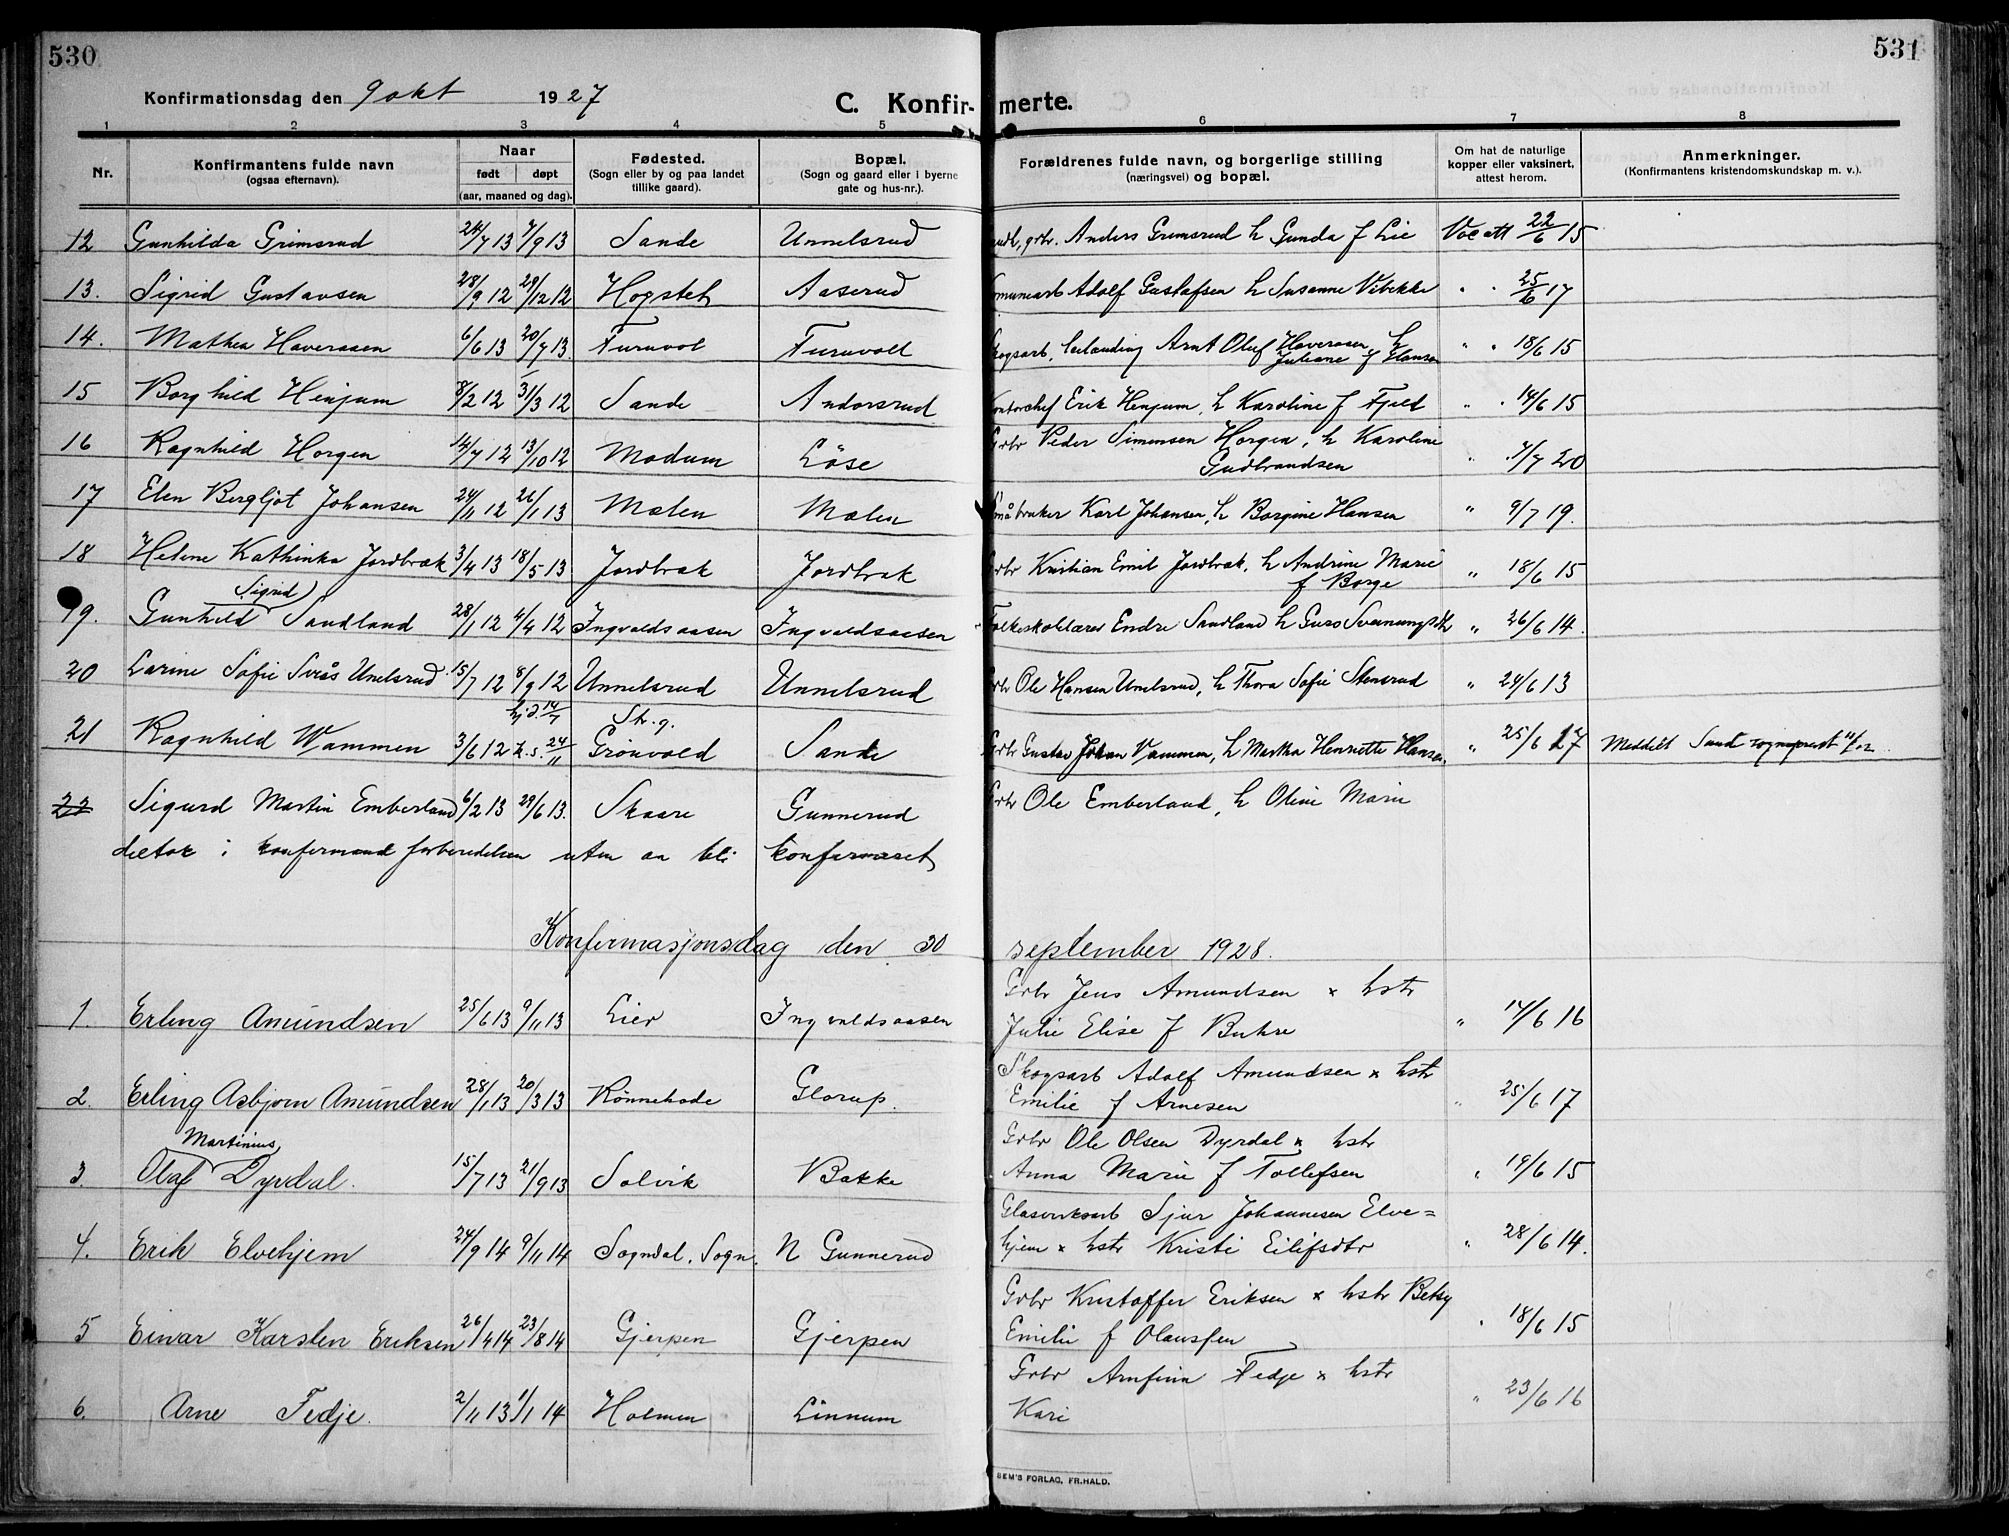 530
531
Konfirmationsdag den 9 okt 1927
C. Konfir- merte.
1 2 3 4 5 6 7 8
Nr.
Konfirmantens fulde navn
(ogsaa efternavn).
Naar
født døpt
(aar, maaned og dag).
Fødested.
(Sogn eller by og paa landet
tillike gaard).
Bopæl.
(Sogn og gaard eller i byerne
gate og hus-nr.).
Forældrenes fulde navn, og borgerlige stilling
(næringsvei) og bopæl.
Om hat de naturlige
kopper eller vaksinert,
attest herom.
Anmerkninger.
(Konfirmantens kristendomskundskap m. v.).
12 Gunhilda Grimsrud 24/7 13 7/9 13 Sande Unnelsrud grbr. Anders Grimsrud h Gunda f Lie Vac att 22/6 15
13. Sigrid Gustavsen 28/9 12 29/12 12 Hogstet Aaserud Adolf Gustafsen h Susanne Vibekke " " 25/6 17
14. Mathea Haveraaen 6/6 13 20/7 13 Furuvol Furuvoll Arnt Oluf Haveraaen, h " " 18/6 15
Juliane f Hansen
15 Borghild Henjum 8/2 12 31/3 12 Sande Andorsrud Kontorchef Erik Henjum, h Karoline f Fjeld " " 14/6 15
16 Ragnhild Horgen 14/7 12 13/10 12 Modum Løse Grbr Peder Simensen Horgen, h Karoline " 1/7 20
Gudbrandsen
17 Elen Bergljot Johansen 24/11 12 26/1 13 Mælen Mælen Småbruker Karl Johansen, h Borgine Hansen " 9/7 19.
18 Helene Kathinka Jordbræk 3/4 13 18/5 13 Jordbræk Jordbræk Grbr Kristian Emil Jordbræk, h Andrine Marie " 18/6 15
f Borge
Sigrid
19. Gunhild Sandland 28/1 12 4/4 12 Ingvaldsaasen Ingvaldsaasen Folkeskolelærer Endre Sandland h Guro " 26/6 14.
20 Larine Sofie Unelsrud 15/7 12 8/9 12 Unnelsrud Unnelsrud Grbr Ole Hansen Unelsrud, h Thora Sofie Stensrud " 24/6 13
hj.d. 14/7 Str. g.
21 Ragnhild Wammen 3/6 12 k.s. 24/11 Grønvold Sande Grbr Gustav Johan Vammen, h Martha Henriette Hansen. " 25/6 27 Meddelt Sande sogneprest
22 Sigurd Martin Emberland 6/2 13 29/6 13. Skaare Gunnerud Grbr Ole Emberland, h Oline Marie
deltok i konfirmand forberedelsen uten aa bli konfirmeret
Konfirmasjonsdag den 30 september 1928.
Grbr Jens Amundsen x hstr
1. Erling Amundsen 25/6 13 9/11 13 Lier Ingvaldsaasen Julie Elise f Buhre " 17/6 16
Skogsarb Adolf Amundsen x hstr
2. Erling Asbjørn Amundsen 28/1 13 20/3 13 Rønnehode Glorup. Emilie f Arnesen " 25/6 17
Martinius Grbr Ole Olsen Dyrdal x hstr
3. Olaf Dyrdal. 15/7 13 21/9 13 Solvik Bakke Anna Marie f Tollefsen " 19/6 15
Glasverksarb Sjur Johannesen Elve=
4. Erik Elvehjem 24/9 14 9/11 14 Sogndal, Sogn. N Gunnerud hjem x hstr Kristi Eilifsdtr " 28/6 14.
Grbr Kristoffer Eriksen x hstr Betsy
5 Einar Karsten Eriksen 26/4 14 23/8 14 Gjerpen Gjerpen Emilie f Olaussen " 18/6 15
Grbr Arnfinn Fedje x hstr
6. Arne Fedje. 2/11 13 1/1 14 Holmen Linnum Kari " 23/6 16
SEM'S FORLAG, FR.HALD.